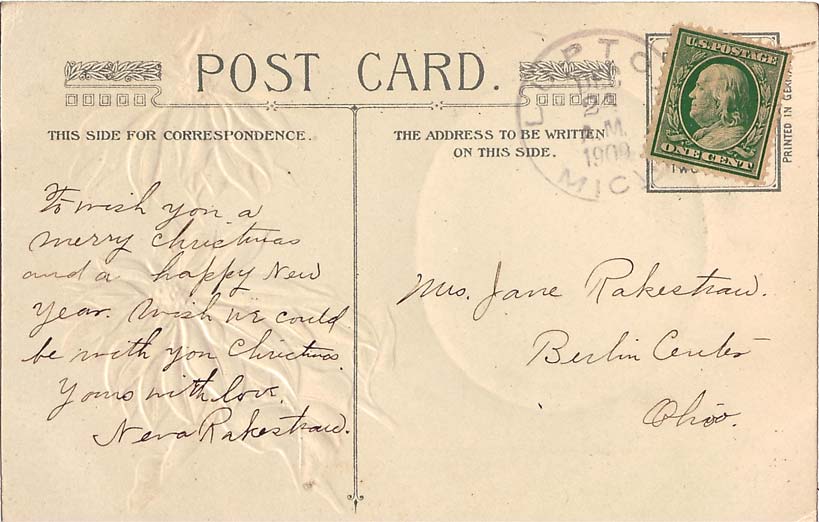 POST CARD.
THIS SIDE FOR CORRESPONDENCE.
To wish you a
merry Christmas
and a happy New
Year. Wish we could
be with you Christmas.
Yours with love,
Neva Rakestraw.
THE ADDRESS TO BE WRITTEN
ON THIS SIDE.
LUPTO
DEC
2
A.M.
1909
MICH
U.S. POSTAGE
ONE CENT
TWO
PRINTED IN GERMA
Mrs. Jane Rakestraw.
Berlin Center
Ohio.